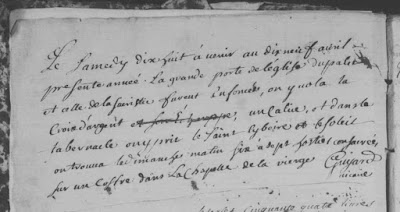 Le Samedy dix huit à venir au dix neuf avril
presente année. La grande porte de léglise du palais
et celle de la sacristie furent enfoncées, on y vola la
Croix d'argent et un Calice, et dans le
tabernacle on y prit le saint Cyboire et le soleil
on trouva le dimanche matin six a sept hosties consacrées
sur un Coffre dans La Chapelle de la vierge Guyard
vicaire
cinquante quatre livres